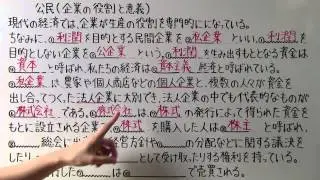 公民(企業の役割と意義)
現代の経済では、企業が生産の役割を専門的にになっている。
ちなみに、①利潤を目的とする民間企業を②私企業といい、①利潤を
目的としない企業を③公企業という。①利潤を生み出すもととなる資金は
④資本と呼ばれ、私たちの経済は⑤資本主義経済と呼ばれている。
②私企業は農家や個人商店などの個人企業と、複数の人々が資金を
出し合ってつくった法人企業に大別でき、法人企業の中でも代表的なものが
株式会社である。株式会社は、株式の発行によって得られた資金を
もとに設立される企業で、株式を購入した人は株主と呼ばれ、
総会に出 営方針や の分配などに関する議決を
したり として受け取ったりする権利を持っている。
した は で売買される。